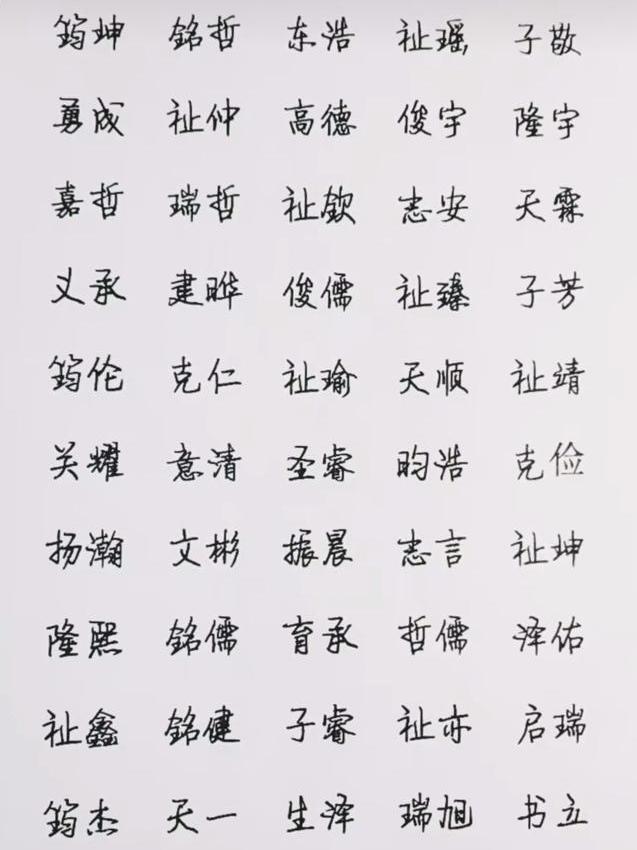 筠坤 铭哲 东浩 祉瑶 子敬
勇成 祉仲 高德 俊宇 隆宇
嘉哲 瑞哲 祉钦 志安 天霖
义承 建晔 俊儒 祉臻 子芳
筠伦 克仁 祉瑜 天顺 祉靖
关耀 意清 圣睿 昀浩 克俭
扬瀚 文彬 振晨 志言 祉坤
隆熙 铭儒 育承 哲儒 泽佑
祉鑫 铭健 子睿 祉亦 启瑞
筠杰 天一 生泽 瑞旭 书立